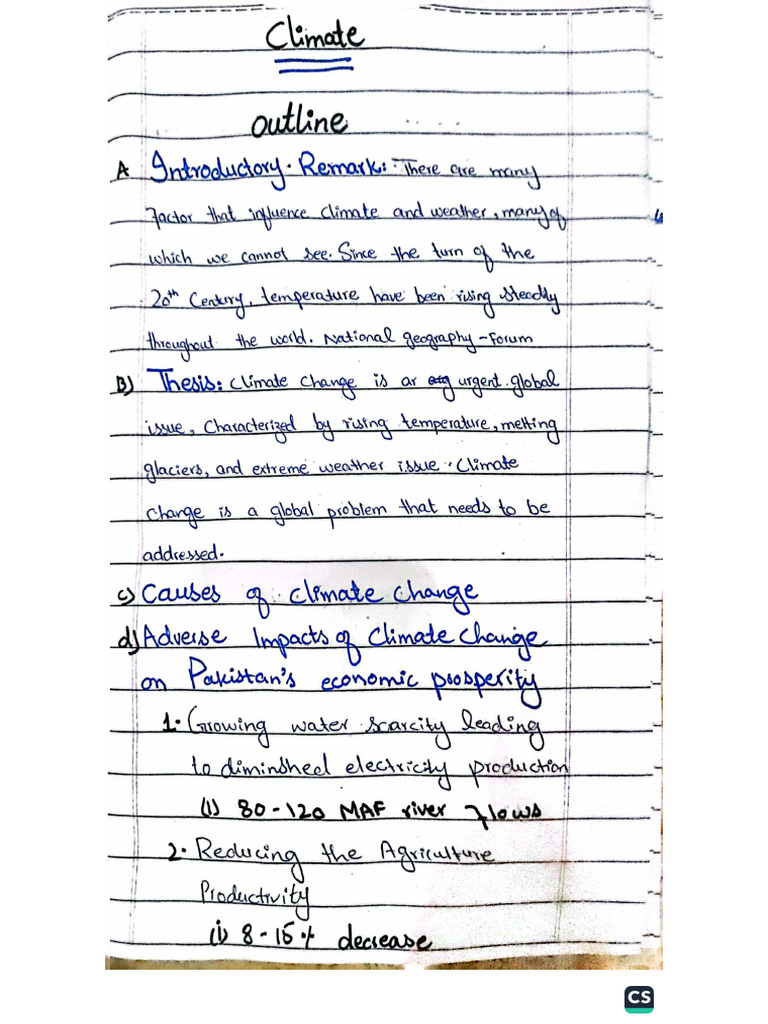 Climate
outline
A Introductory. Remark: There are many
Factor that influence climate and weather, many of
which we cannot see. Since the turn of the
20th Century, temperature have been rising steadly
throughout the world. National geography - Forum
B) Thesis: Climate Change is an urgent global
issue, Characterized by rising temperature, melting
glaciers, and extreme weather issue. Climate
change is a global problem that needs to be
addressed.
c) Causes of climate change
d) Adverse Impacts of Climate Change
on Pakistan's economic prosperity
1. Growing water scarcity leading
to diminshed electricity production
(1) 80-120 MAF river flows
2. Reducing the Agriculture
Productivity
(i) 8-15% decrease
CS